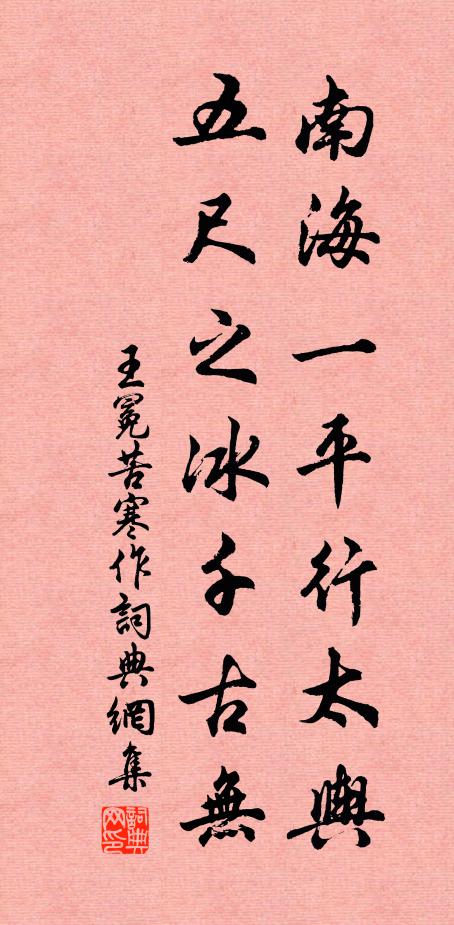 南海一平行太輿
五尺之冰千古無
王冕苦寒作詞典網集
詞典网印